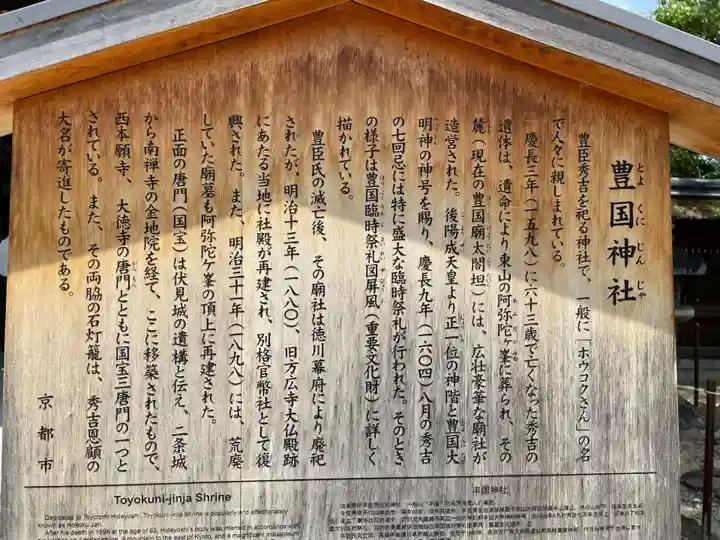 豊国神社
とよくにじんじゃ
豊臣秀吉を祀る神社で、一般に「ホウコクさん」の名
で人々に親しまれている。
慶長三年(一五九八)に六十三歳で亡くなった秀吉の
遺体は、遺命により東山の阿弥陀ヶ峯に葬られ、その
麓(現在の豊国廟太閤坦)には、広壮豪華な廟社が
造営された。後陽成天皇より正一位の神階と豊国大
明神の神号を賜り、慶長九年(一六〇四)八月の秀吉
の七回忌には特に盛大な臨時祭礼が行われた。そのとき
の様子は豊国臨時祭礼図屏風(重要文化財)に詳しく
描かれている。
豊臣氏の滅亡後、その廟社は徳川幕府により廃祀
されたが、明治十三年(一八八〇)、旧方広寺大仏殿跡
にあたる当地に社殿が再建され、別格官幣社として復
興された。また、明治三十一年(一八九八)には、荒廃
していた廟墓も阿弥陀ヶ峯の頂上に再建された。
正面の唐門(国宝)は伏見城の遺構と伝え、二条城
から南禅寺の金地院を経て、ここに移築されたもので、
西本願寺、大徳寺の唐門とともに国宝三唐門の一つと
されている。また、その両脇の石灯籠は、秀吉恩顧の
大名が寄進したものである。
京都市
Toyokuni-jinja Shrine
Dedicated to Toyotomi Hideyoshi, Toyokuni-jinja Shrine is popularly and affectionately
known as Hokoku san.
After his death in 1598 at the age of 63, Hideyoshi's body was interred in accordance with
丰国神社